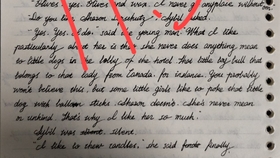 "Olives yes. Olives and wax. I never go anyplace without
"Do you like Sharon Lipschutz?" Sybil asked.
"Yes. Yes, I do," said the young man. "What I like
particularly about her is that she never does anything mean
to little dogs in the lobby of the hotel. That little toy bull that
belongs to that lady from Canada, for instance. You probably
won't believe this, but some little girls like to poke that little
dog with balloon sticks. Sharon doesn't. She's never mean
or unkind. That's why I like her so much."
Sybil was silent.
"I like to chew candles," she said finally.